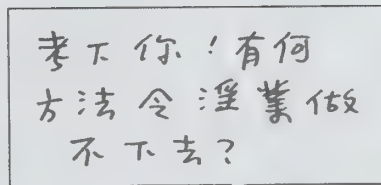 考下你！有何
方法令淫業做
不下去？